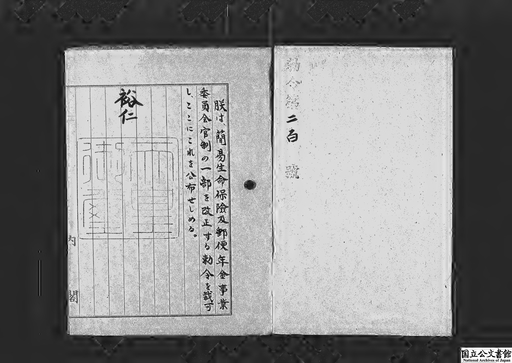 勅令第二百號
朕は簡易生命保險及郵便年金事業
委員会官制の一部を改正する勅令を裁可
し、ここにこれを公布せしめる。
裕仁
天皇御璽
内閣
国立公文書館
National Archives of Japan